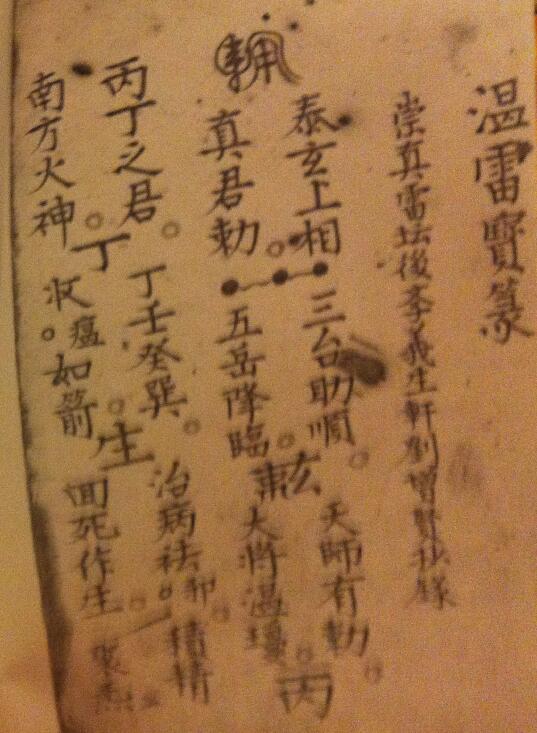 温雷寶篆
崇真雷坛後李義生軒劉增賢抄録
泰玄上相 三台助順 玄 天師有勅 丙
真君勅 五岳降臨 大將温瓊
丙丁之君 丁壬癸巽 治病祛邪 精精
丁 生
南方火神 收瘟如箭 回死作生